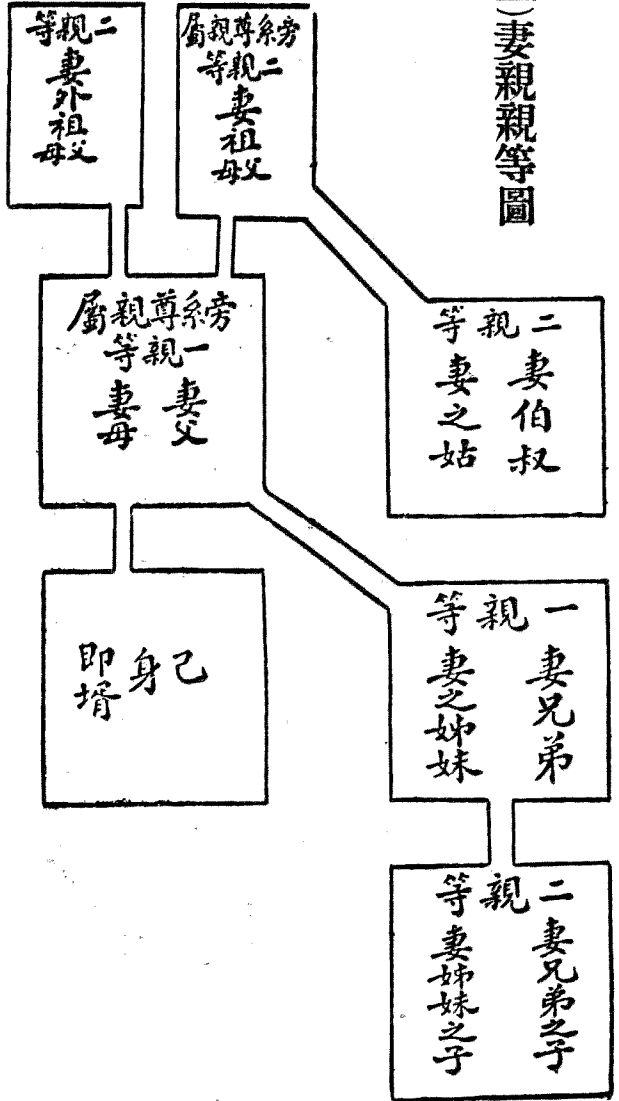 )妻親親等圖
旁系尊親屬
二親等
妻祖父母
二親等
妻外祖父母
二親等
妻伯叔
妻之姑
旁系尊親屬
一親等
妻父
妻母
一親等
妻兄弟
妻之姊妹
己身
即壻
二親等
妻兄弟之子
妻姊妹之子